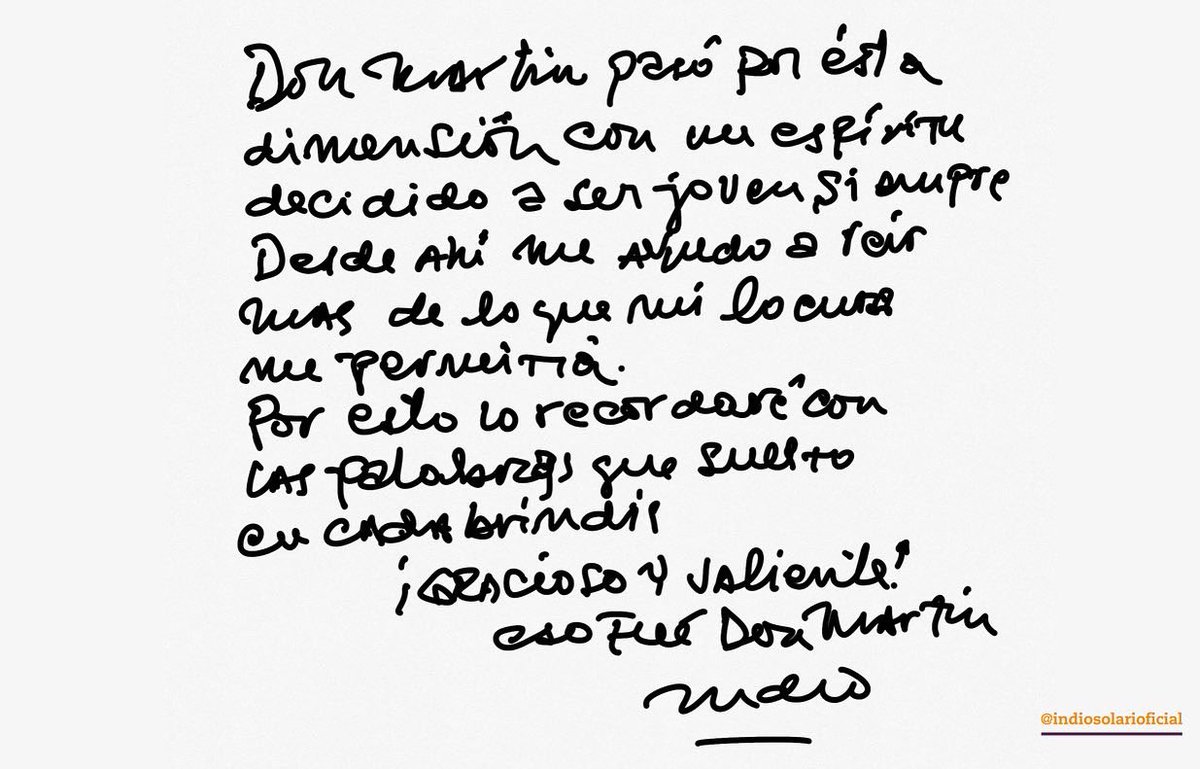 Don Martin pasó por ésta
dimensión con un espíritu
decidido a ser joven siempre
Desde Ahí me ayudo a reír
mas de lo que mi locura
me permitía.
Por esto lo recordaré con
las palabras que suelto
en cada brindis
¡Gracioso y valiente!
eso Fué Don Martin
Indio
@indiosolarioficial